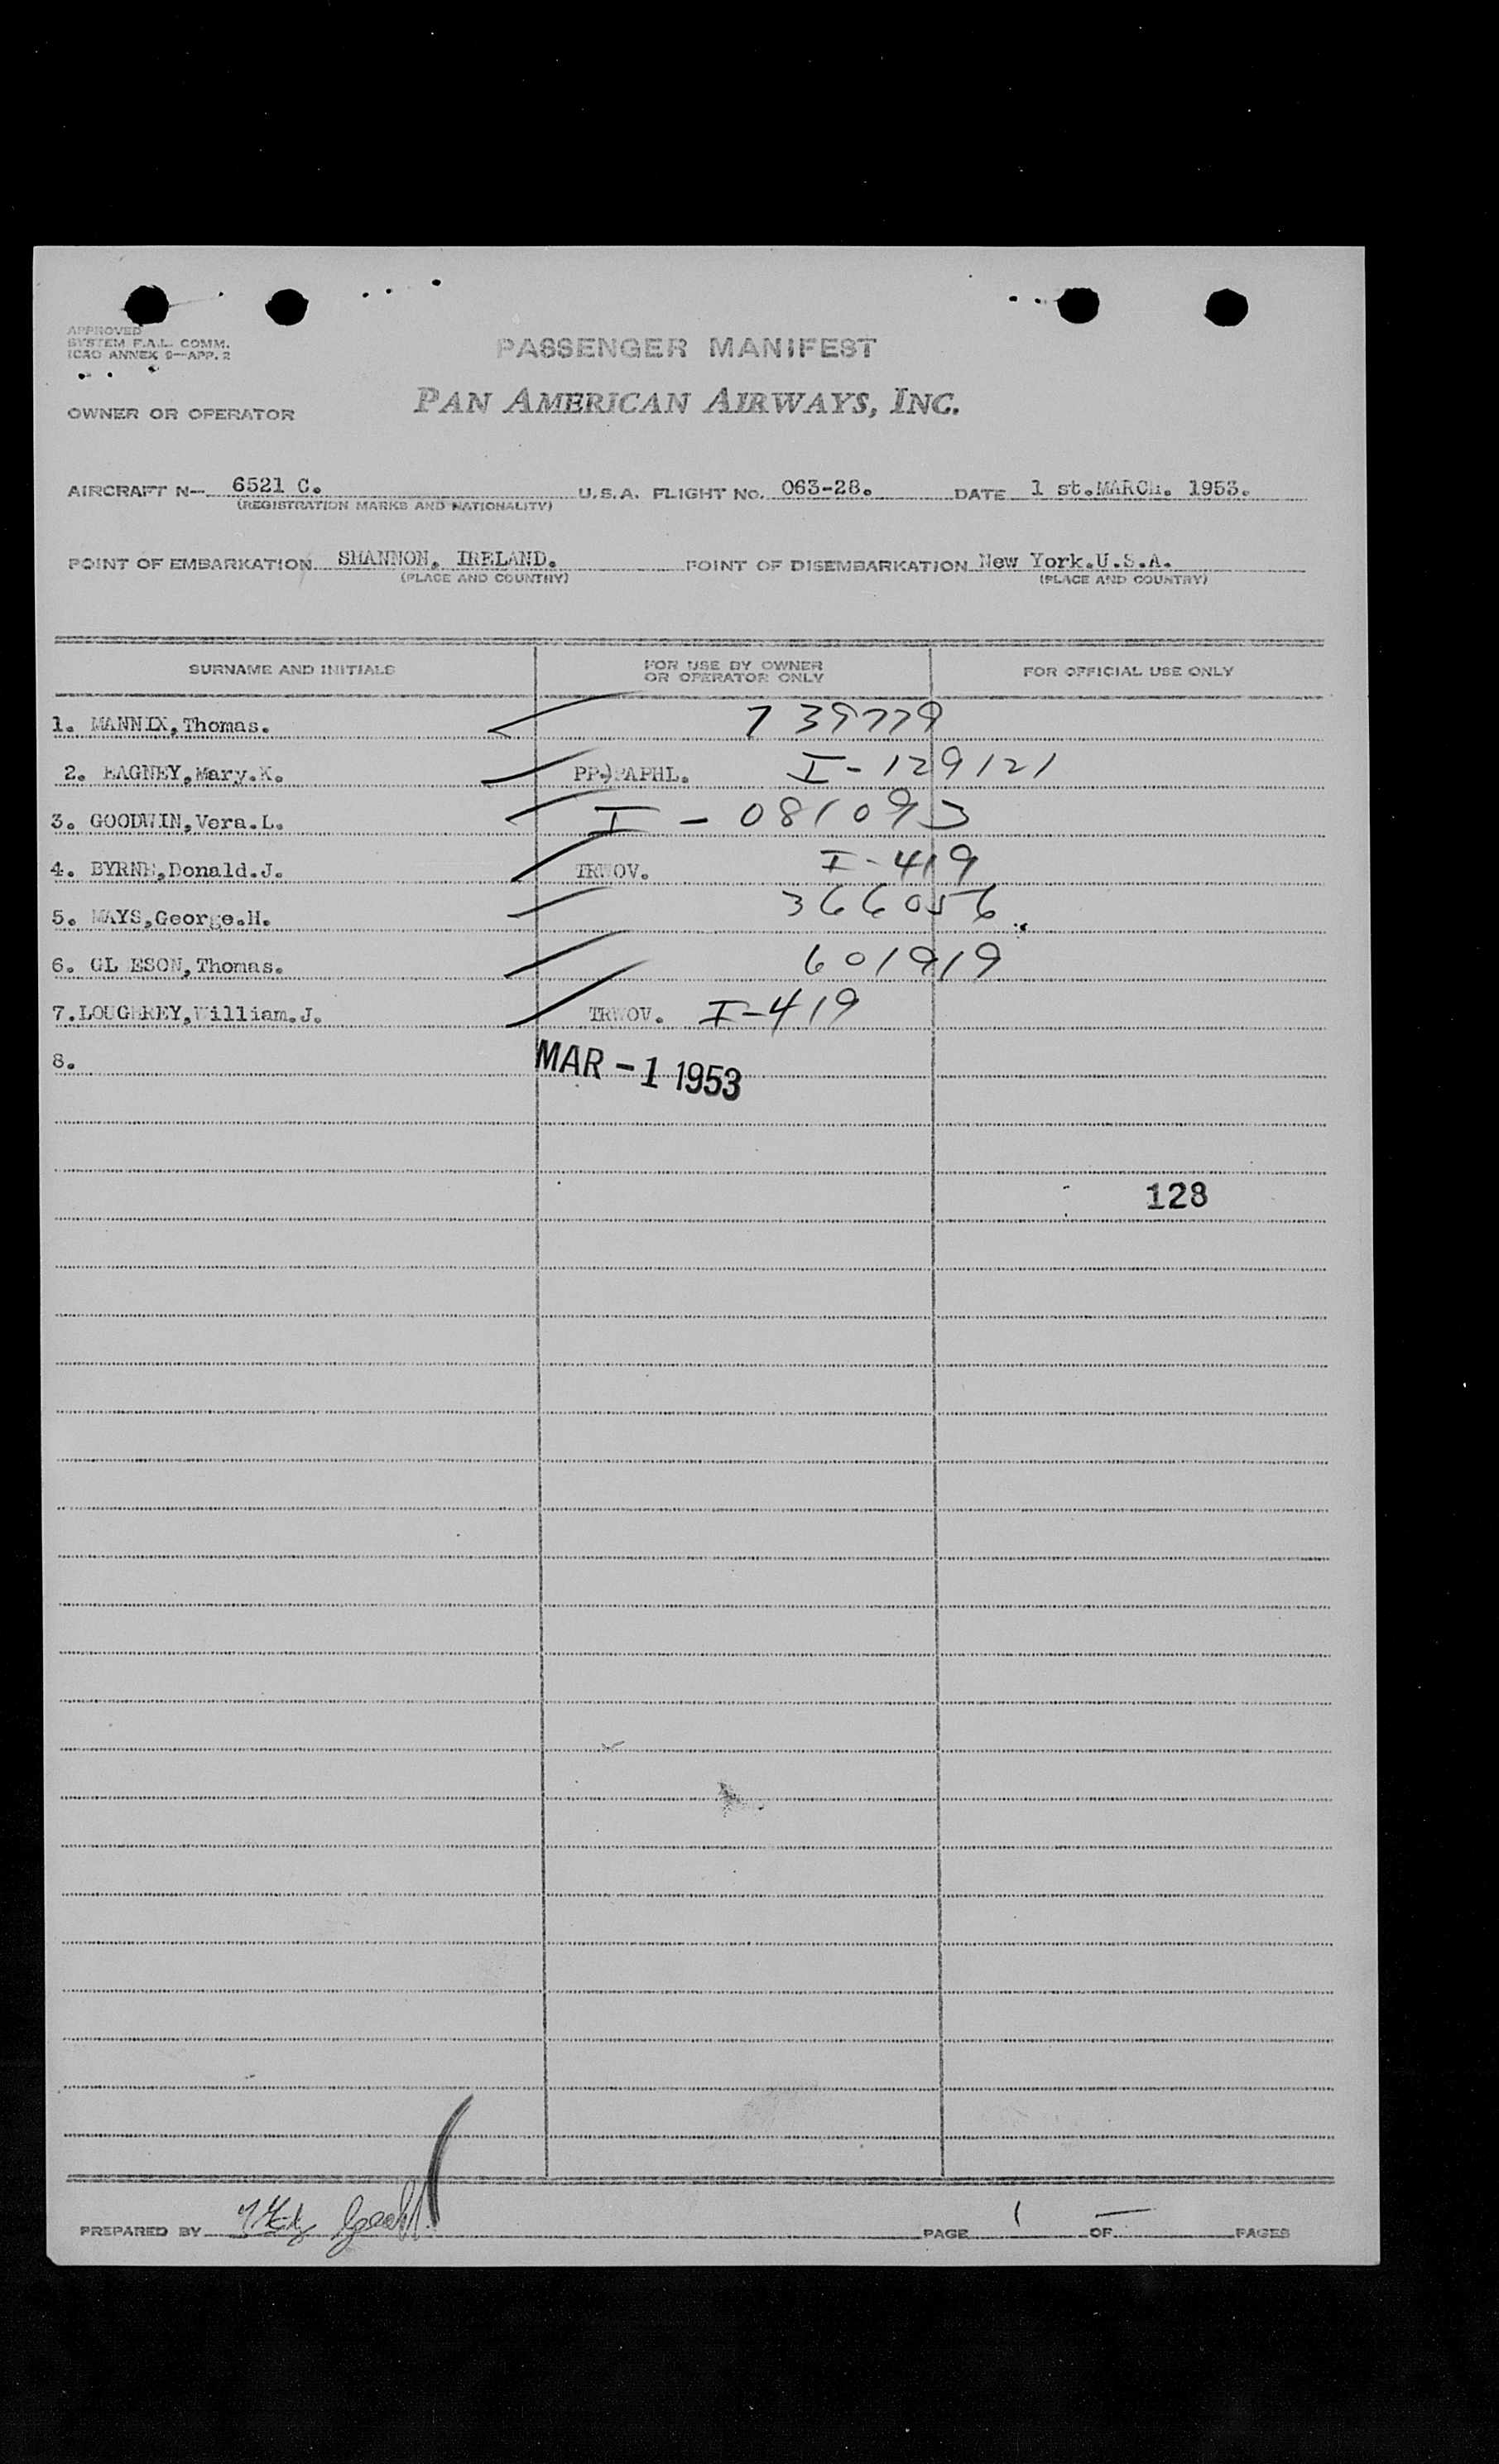 APPROVED
SYSTEM F.A.L. COMM.
ICAO ANNEX 9—APP. 2
PASSENGER MANIFEST
OWNER OR OPERATOR PAN AMERICAN AIRWAYS, INC.
AIRCRAFT N— 6521 C. U.S.A. FLIGHT NO. 063-28. DATE 1 st.MARCH. 1953.
(REGISTRATION MARKS AND NATIONALITY)
POINT OF EMBARKATION SHANNON. IRELAND. POINT OF DISEMBARKATION New York.U.S.A.
(PLACE AND COUNTRY) (PLACE AND COUNTRY)
SURNAME AND INITIALS FOR USE BY OWNER OR OPERATOR ONLY FOR OFFICIAL USE ONLY
1. MANNIX,Thomas. 7 39779
2. EAGNEY,Mary.K. PP. PAPHL. I-129121
3. GOODWIN,Vera.L. I - 081093
4. BYRNE,Donald.J. TRWOV. I-419
5. MAYS,George.H. 366056
6. GL ESON,Thomas. 601919
7.LOUGHREY,William.J. TRWOV. I-419
8.
MAR -1 1953
128
PREPARED BY PAGE 1 OF — PAGES